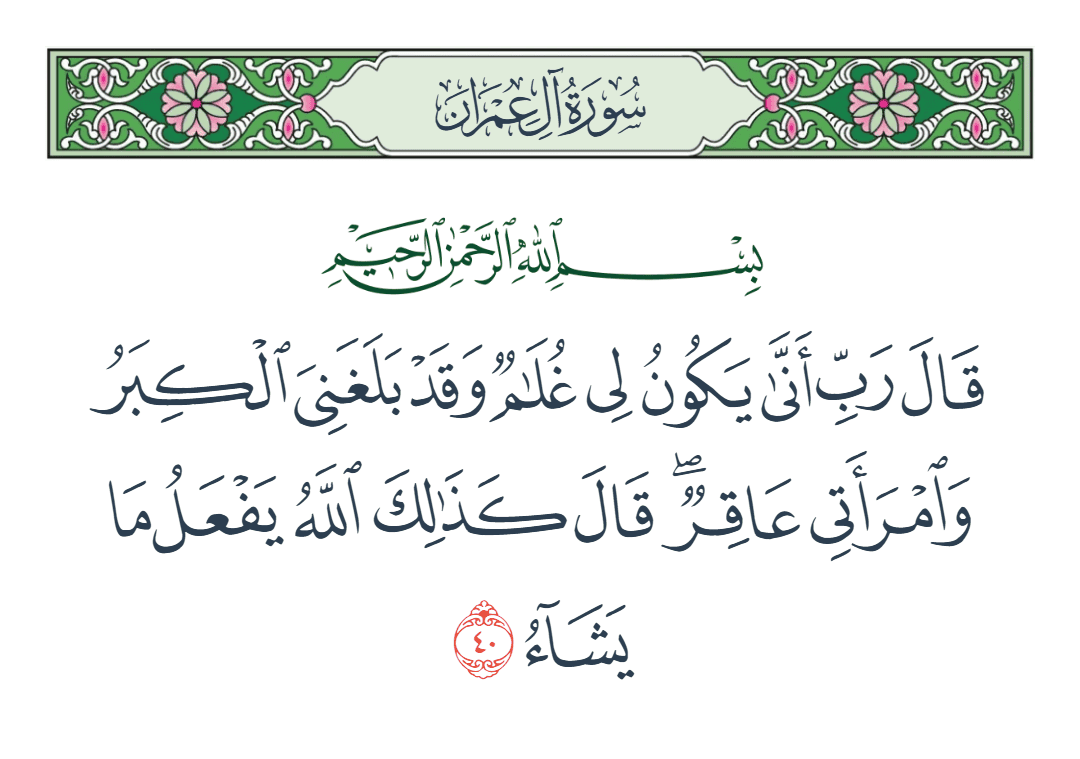 سُورَةُ آلِ عِمْرَانَ
بِسْمِ ٱللَّهِ ٱلرَّحْمَٰنِ ٱلرَّحِيمِ
قَالَ رَبِّ أَنَّىٰ يَكُونُ لِى غُلَٰمٌ وَقَدْ بَلَغَنِىَ ٱلْكِبَرُ
وَٱمْرَأَتِى عَاقِرٌ ۖ قَالَ كَذَٰلِكَ ٱللَّهُ يَفْعَلُ مَا
يَشَآءُ ٤٠